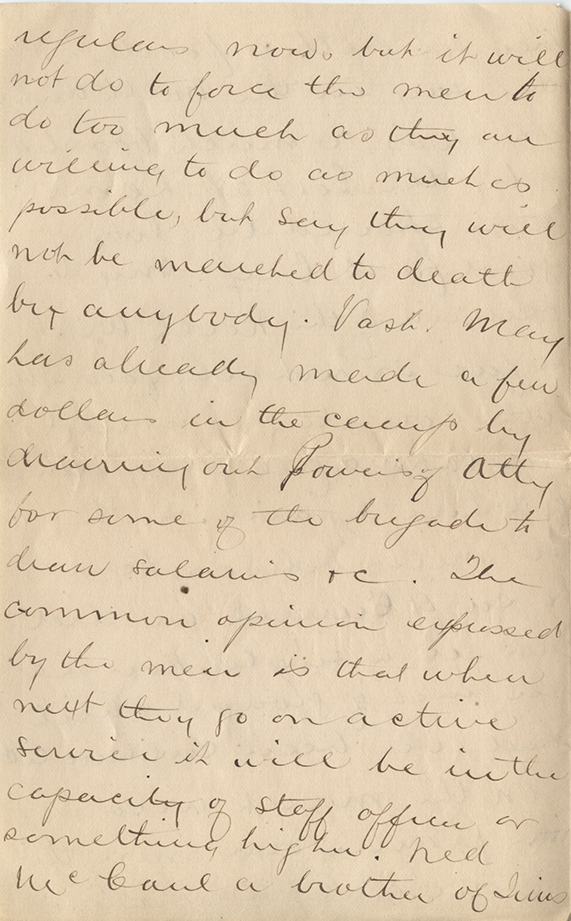 regulars now, but it will
not do to force the men to
do too much as they are
willing to do as much as
possible, but say they will
not be marched to death
by anybody. Vash. May
has already made a few
dollars in the camp by
drawing out Powers of Atty
for some of the brigade to
draw salaries &c. The
common opinion expressed
by the men is that when
next they go on active
service it will be in the
capacity of staff officer or
something higher. Ned
McCaul a brother of Jims